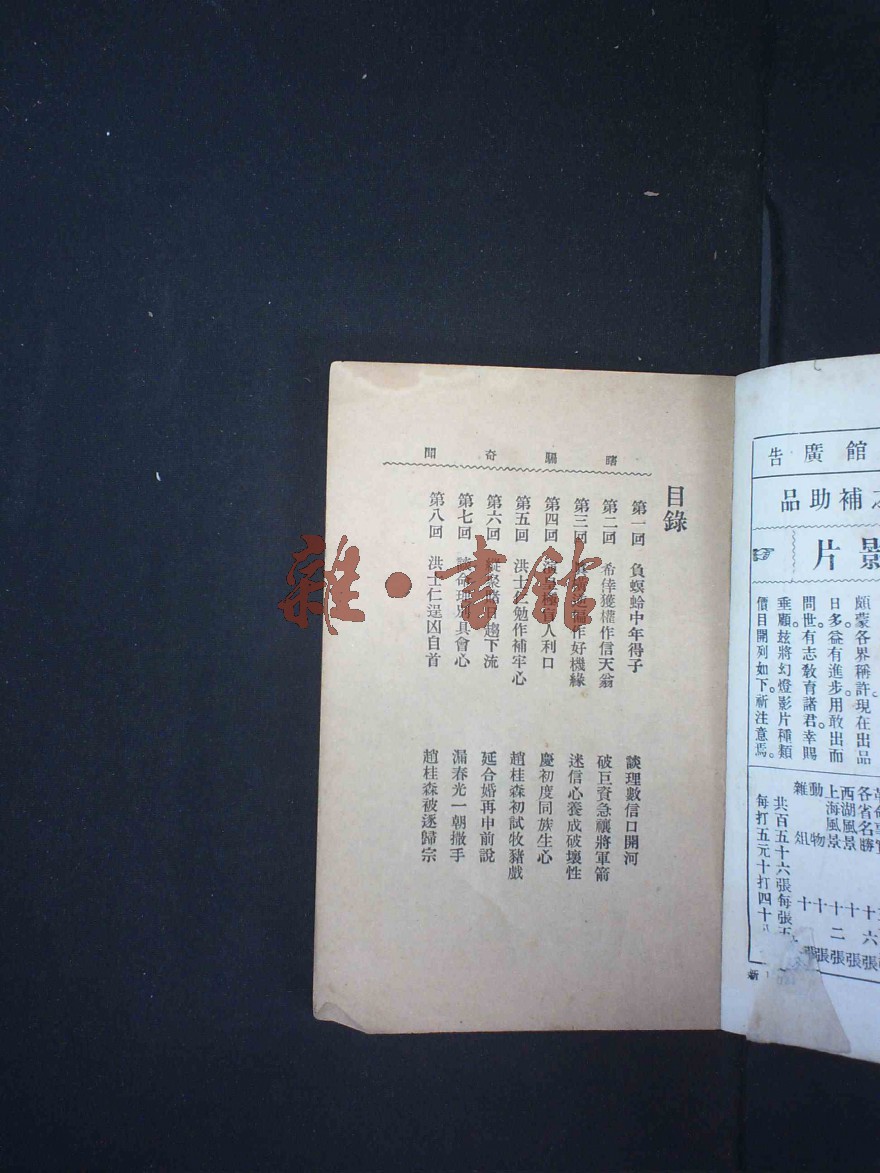 館廣告
補助品
影片
頗蒙各界稱許。現在出品
日多。益有進步。用敢出而
問世。有志敎育諸君。幸賜
垂顧。玆將幻燈影片種類
價目開列如下。祈注意焉。
各省名勝
西湖風景
上海風景
動物
雜俎
共百五十六張每張
每打五元十打四十
瞎騙奇聞
目錄
第一回 負螟蛉中年得子 談理數信口開河
第二回 希倖獲權作信天翁 破巨資急禳將軍箭
第三回 作好機緣 迷信心養成破壞性
第四回 人利口 慶初度同族生心
第五回 洪士仁勉作補牢心 趙桂森初試牧豬戲
第六回 趨下流 延合婚再申前說
第七回 別具會心 漏春光一朝撒手
第八回 洪士仁逞凶自首 趙桂森被逐歸宗
雜·書館